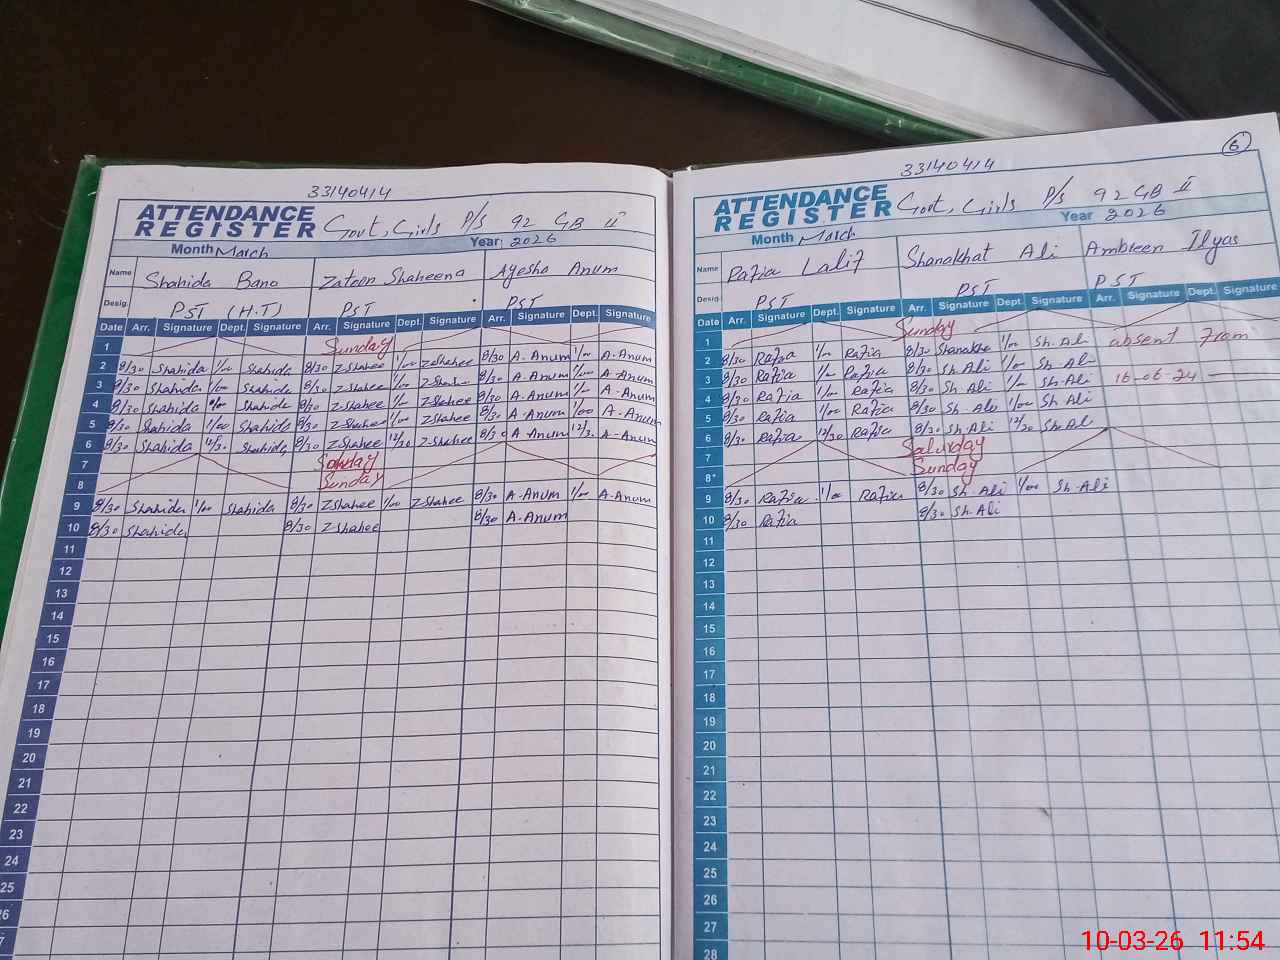 33140414
ATTENDANCE REGISTER Govt, Girls P/S 92 GB II
Month March Year: 2026
Name Shahida Bano Zatoon Shaheena Ayesha Anum
Desig. PST (H.T) PST PST
Date Arr. Signature Dept. Signature Arr. Signature Dept. Signature Arr. Signature Dept. Signature
1 Sunday
2 8/30 Shahida 1/00 Shahida 8/30 Z-Shahee 1/00 Z-Shahee 8/30 A-Anum 1/00 A-Anum
3 8/30 Shahida 1/00 Shahida 8/30 Z-Shahee 1/00 8/30 A-Anum 1/00 A-Anum
4 8/30 Shahida 1/00 Shahida 8/30 Z-Shahee 1/00 Z-Shahee 8/30 A-Anum 1/00 A-Anum
5 8/30 Shahida 1/00 Shahida 8/30 Z-Shahee 1/00 Z-Shahee 8/30 A-Anum 1/00 A-Anum
6 8/30 Shahida 12/30 Shahida 8/30 Z-Shahee 12/30 Z-Shahee 8/30 A-Anum 12/30 A-Anum
7 Saturday
8 Sunday
9 8/30 Shahida 1/00 Shahida 8/30 Z-Shahee 1/00 Z-Shahee 8/30 A-Anum 1/00 A-Anum
10 8/30 Shahida 8/30 Z-Shahee 8/30 A-Anum
11
12
13
14
15
16
17
18
19
20
21
22
23
24
25
26
6
33140414
ATTENDANCE REGISTER Govt, Girls P/S 92 GB II
Month March Year 2026
Name Razia Latif Shanakhat Ali Ambreen Ilyas
Desig. PST PST PST
Date Arr. Signature Dept. Signature Arr. Signature Dept. Signature Arr. Signature Dept. Signature
1 Sunday
2 8/30 Razia 1/00 Razia 8/30 Shanakha 1/00 Sh. Ali absent From
3 8/30 Razia 1/00 Razia 8/30 Sh. Ali 1/00 Sh. Ali
4 8/30 Razia 1/00 Razia 8/30 Sh. Ali 1/00 Sh. Ali 16-06-24
5 8/30 Razia 1/00 Razia 8/30 Sh. Ali 1/00 Sh. Ali
6 8/30 Razia 12/30 Razia 8/30 Sh. Ali 12/30 Sh. Ali
7 Saturday
8 Sunday
9 8/30 Razia 1/00 Razia 8/30 Sh. Ali 1/00 Sh. Ali
10 8/30 Razia 8/30 Sh. Ali
11
12
13
14
15
16
17
18
19
20
21
22
23
24
25
26
27
28
10-03-26 11:54